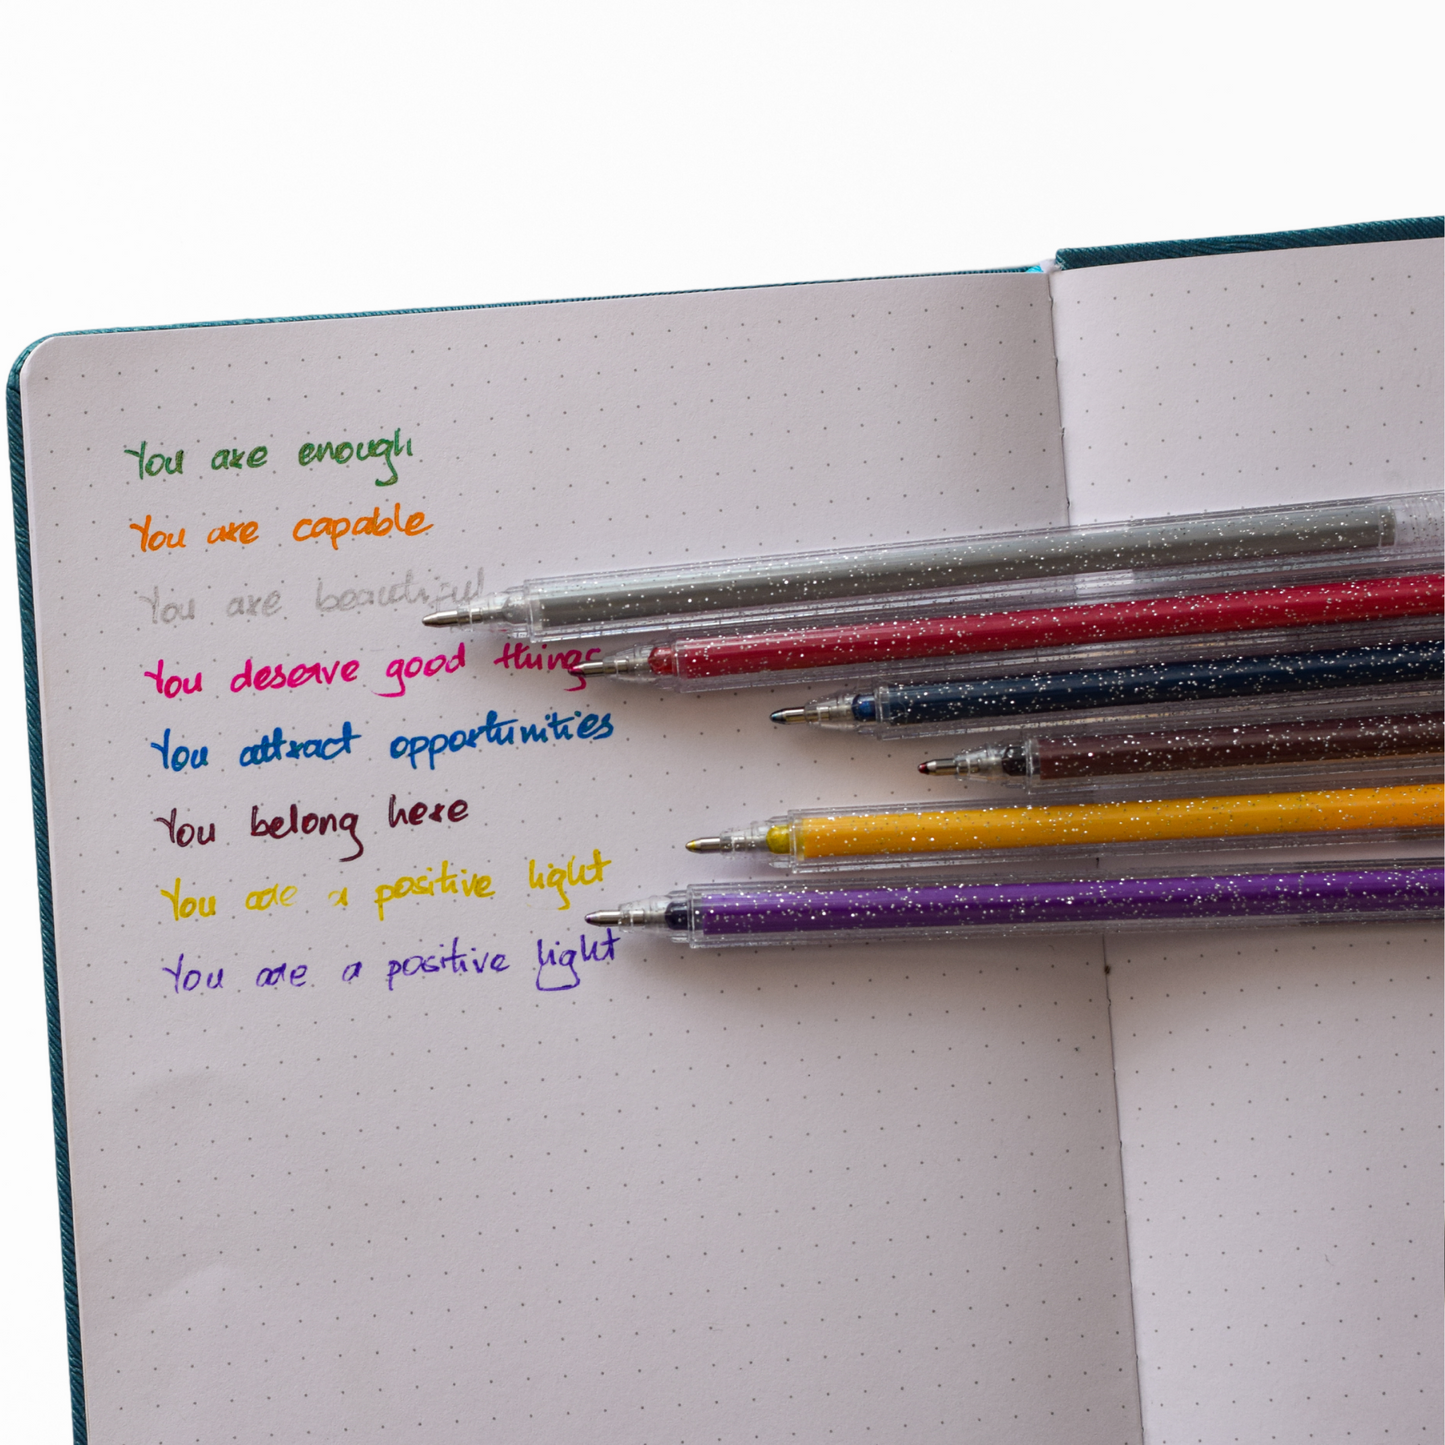 You are enough
You are capable
You are beautiful
You deserve good things
You attract opportunities
You belong here
You are a positive light
You are a positive light